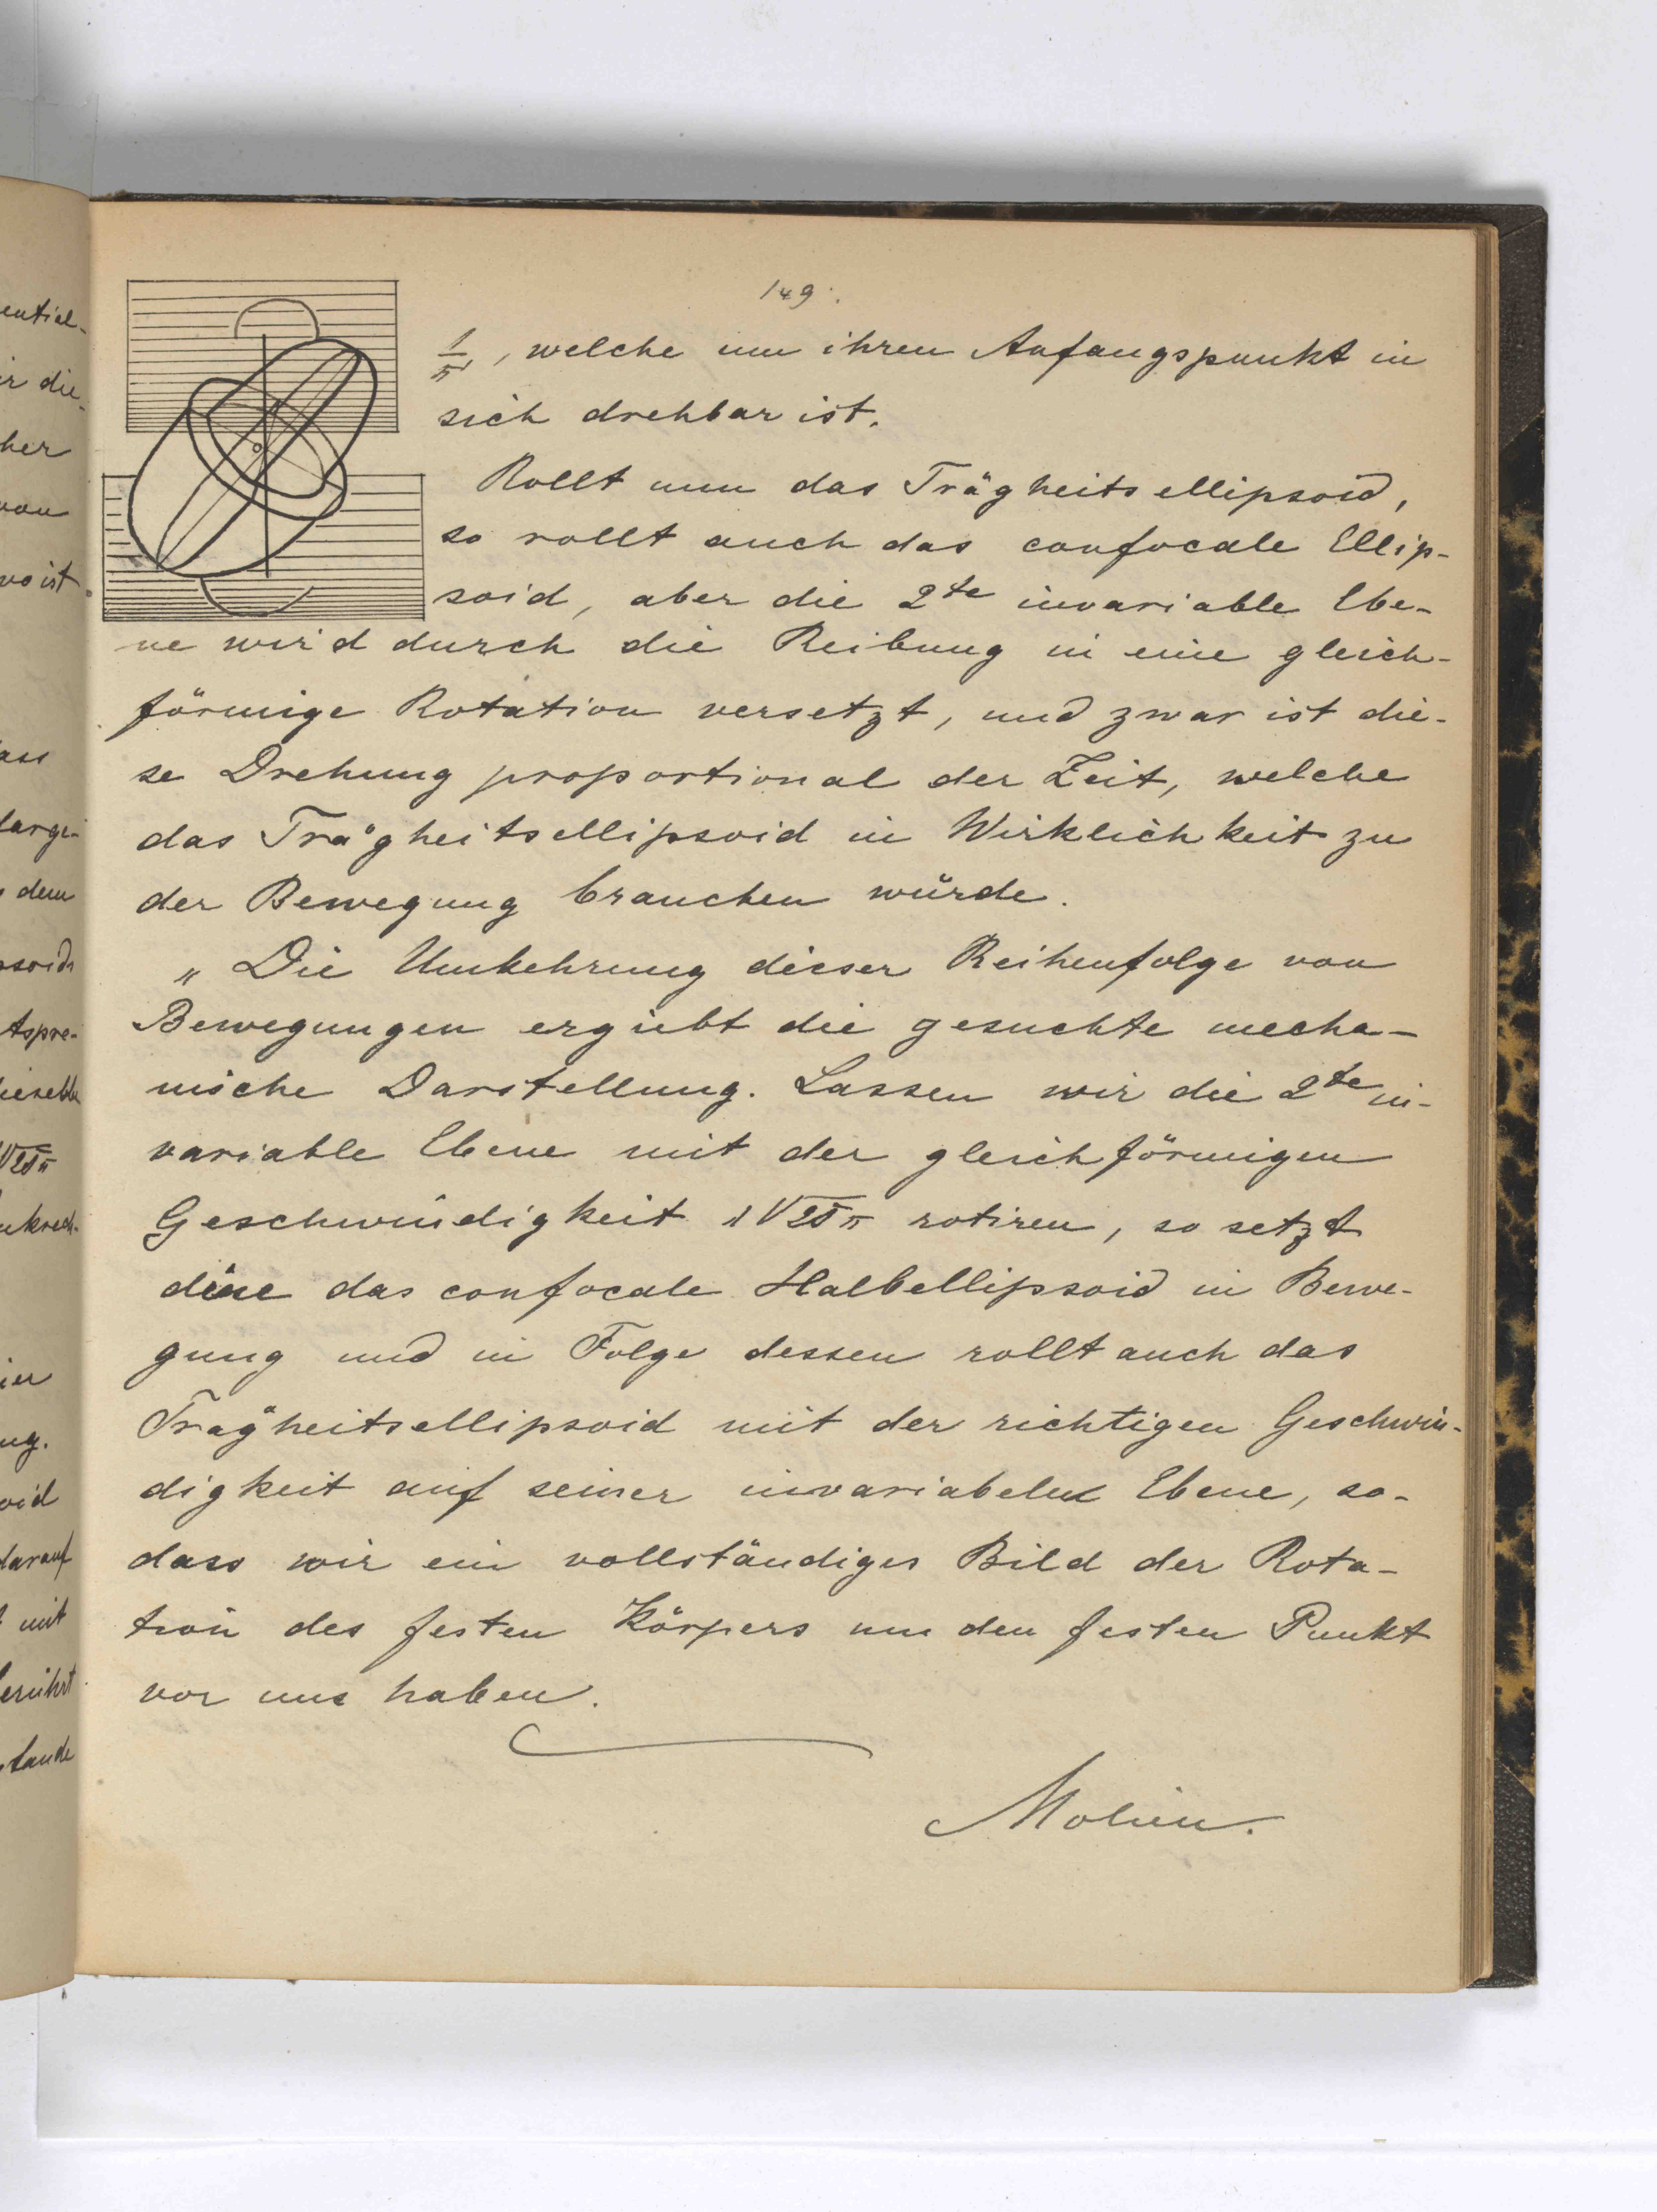 149.
1/π, welche um ihren Anfangspunkt in
sich drehbar ist.
Rollt nun das Trägheitsellipsoid,
so rollt auch das confocale Ellip-
soid, aber die 2te invariable Ebe-
ne wird durch die Reibung in eine gleich-
förmige Rotation versetzt, und zwar ist die-
se Drehung proportional der Zeit, welche
das Trägheitsellipsoid in Wirklichkeit zu
der Bewegung brauchen würde.
„Die Umkehrung dieser Reihenfolge von
Bewegungen ergiebt die gesuchte mecha-
nische Darstellung. Lassen wir die 2te in-
variable Ebene mit der gleichförmigen
Geschwindigkeit rotiren, so setzt
diese das confocale Halbellipsoid in Bewe-
gung und in Folge dessen rollt auch das
Trägheitsellipsoid mit der richtigen Geschwin-
digkeit auf seiner invariabeln Ebene, so-
dass wir ein vollständiges Bild der Rota-
tion des festen Körpers um den festen Punkt
vor uns haben.
Molien.
ential-
r die-
her
von
wo ist
dem
mit